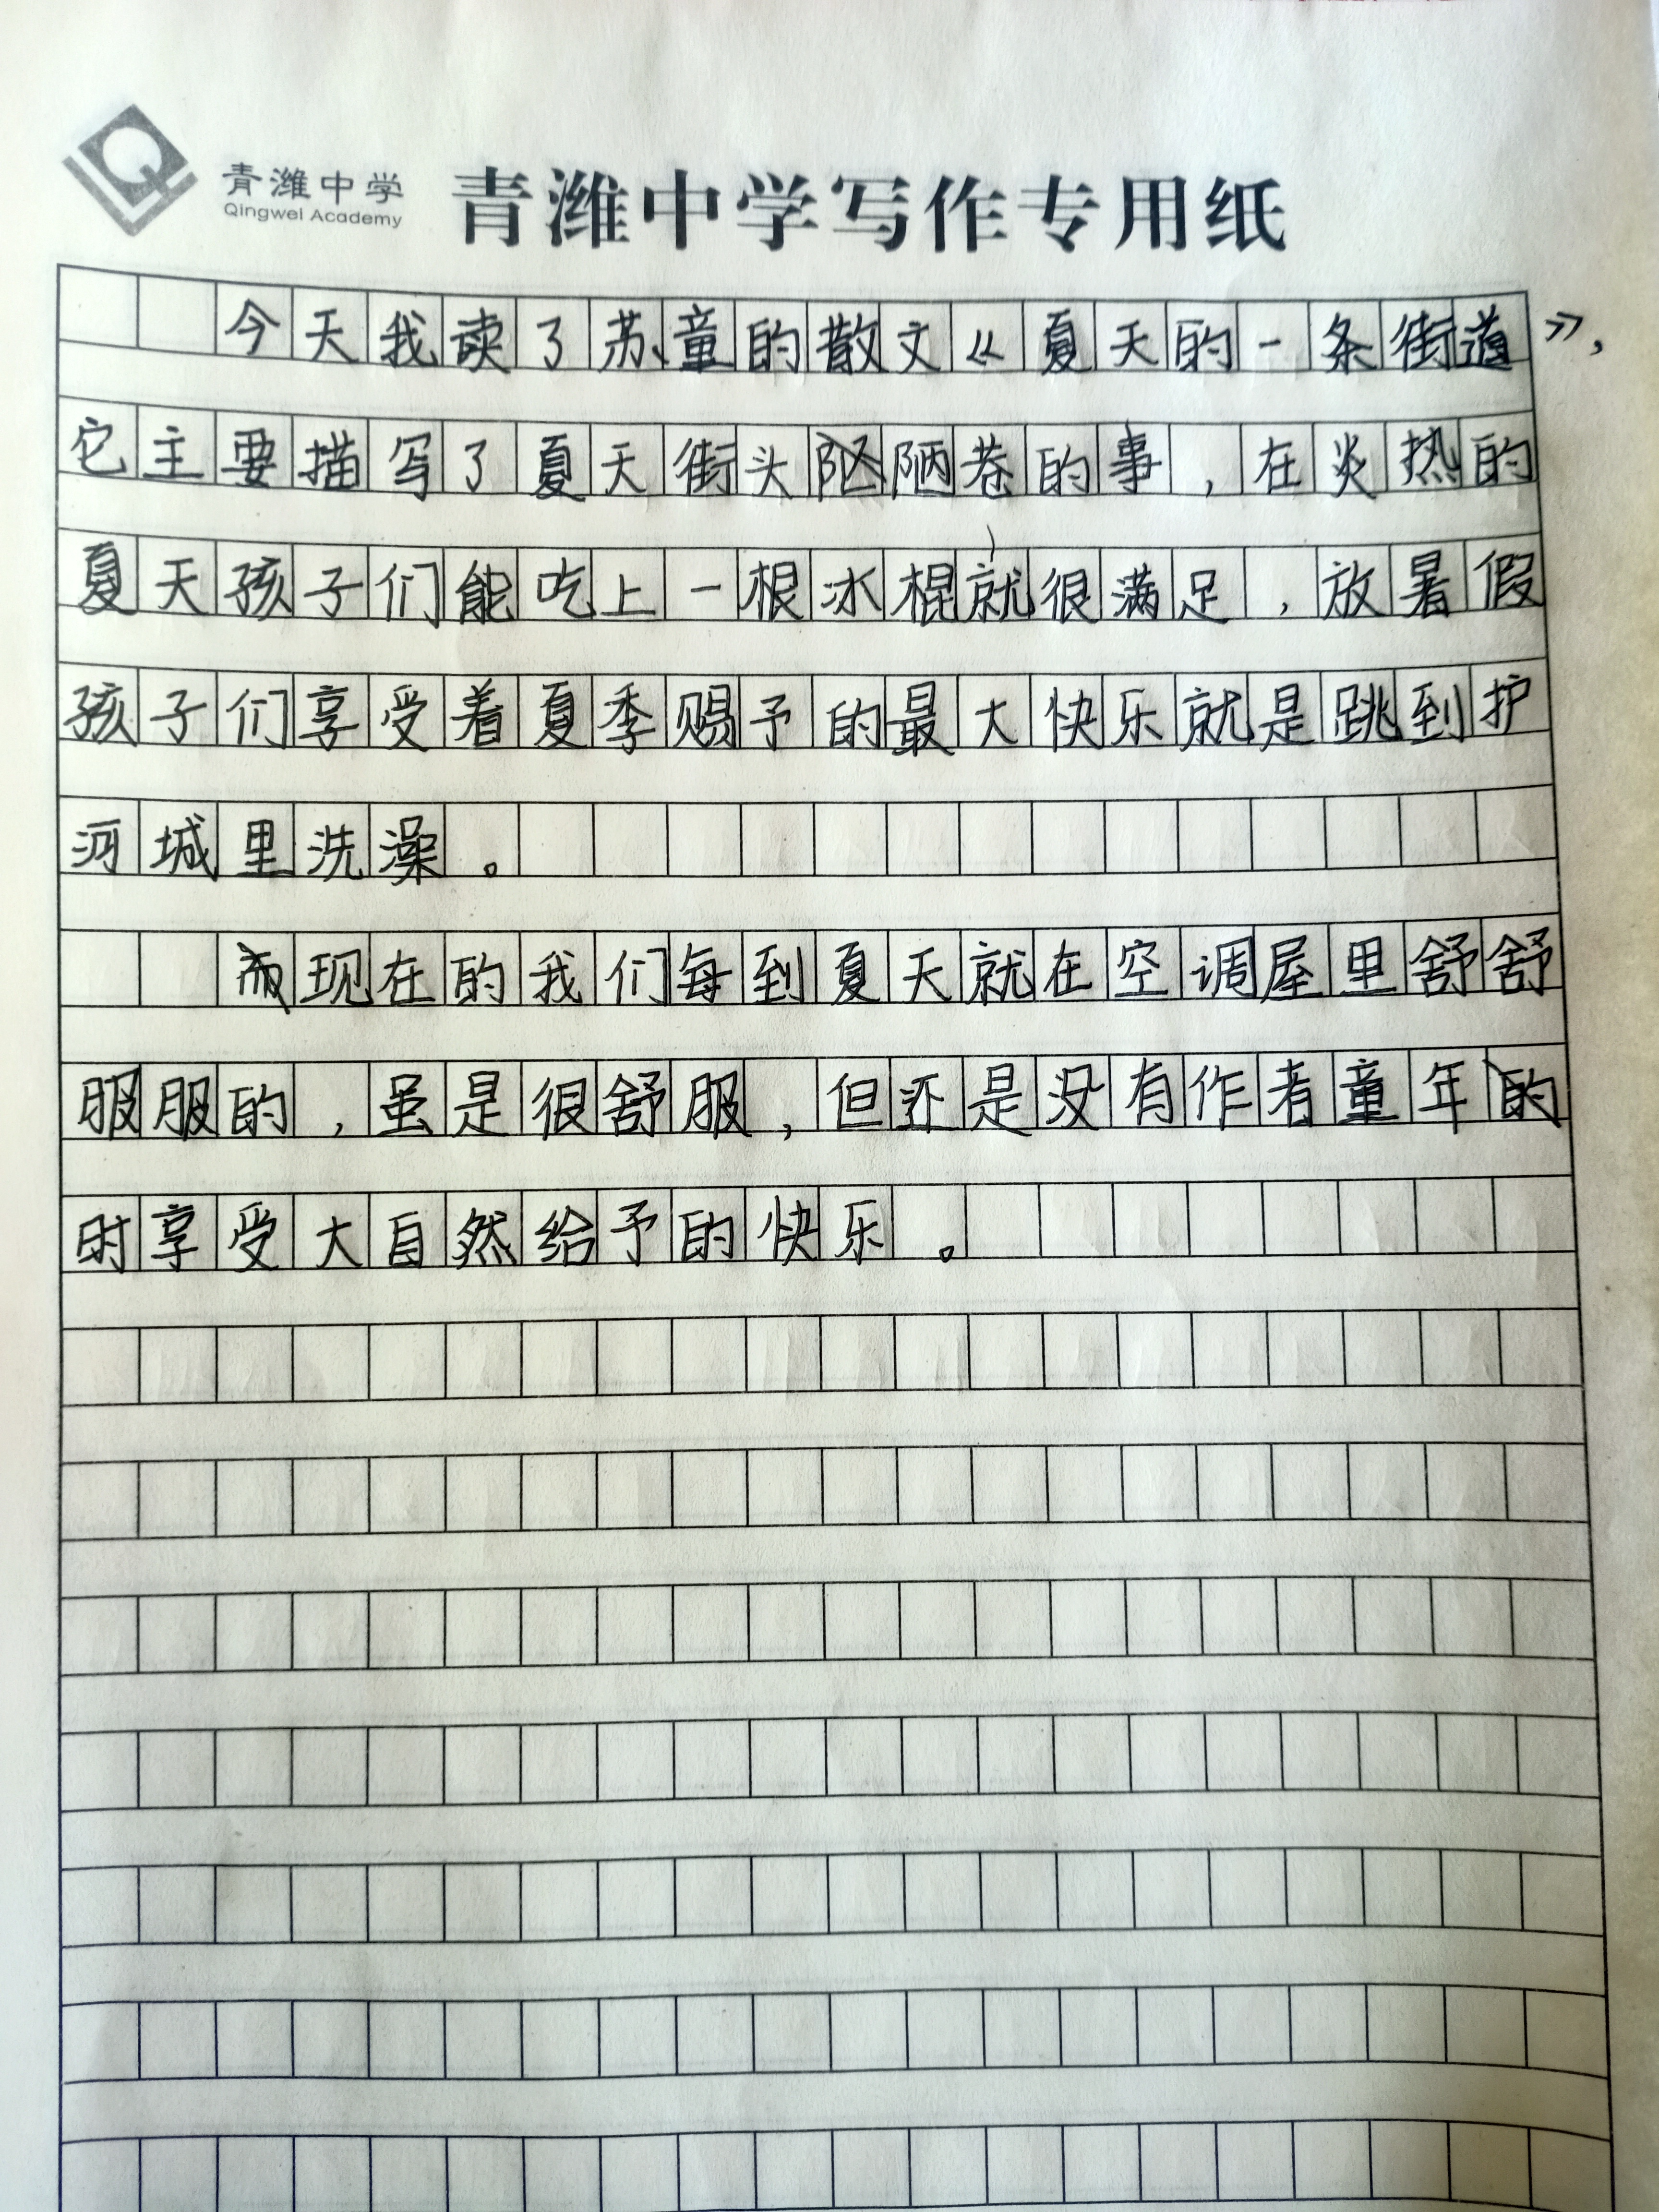 青潍中学
Qingwei Academy
青潍中学写作专用纸
今天我读了苏童的散文《夏天的一条街道》,
它主要描写了夏天街头陋巷的事,在炎热的
夏天孩子们能吃上一根冰棍就很满足,放暑假
孩子们享受着夏季赐予的最大快乐就是跳到护
河城里洗澡。
而现在的我们每到夏天就在空调屋里舒舒
服服的,虽是很舒服,但还是没有作者童年的
时享受大自然给予的快乐。